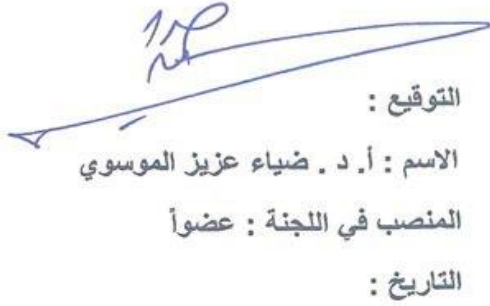 التوقيع :
الاسم : أ. د . ضياء عزيز الموسوي
المنصب في اللجنة : عضواً
التاريخ :